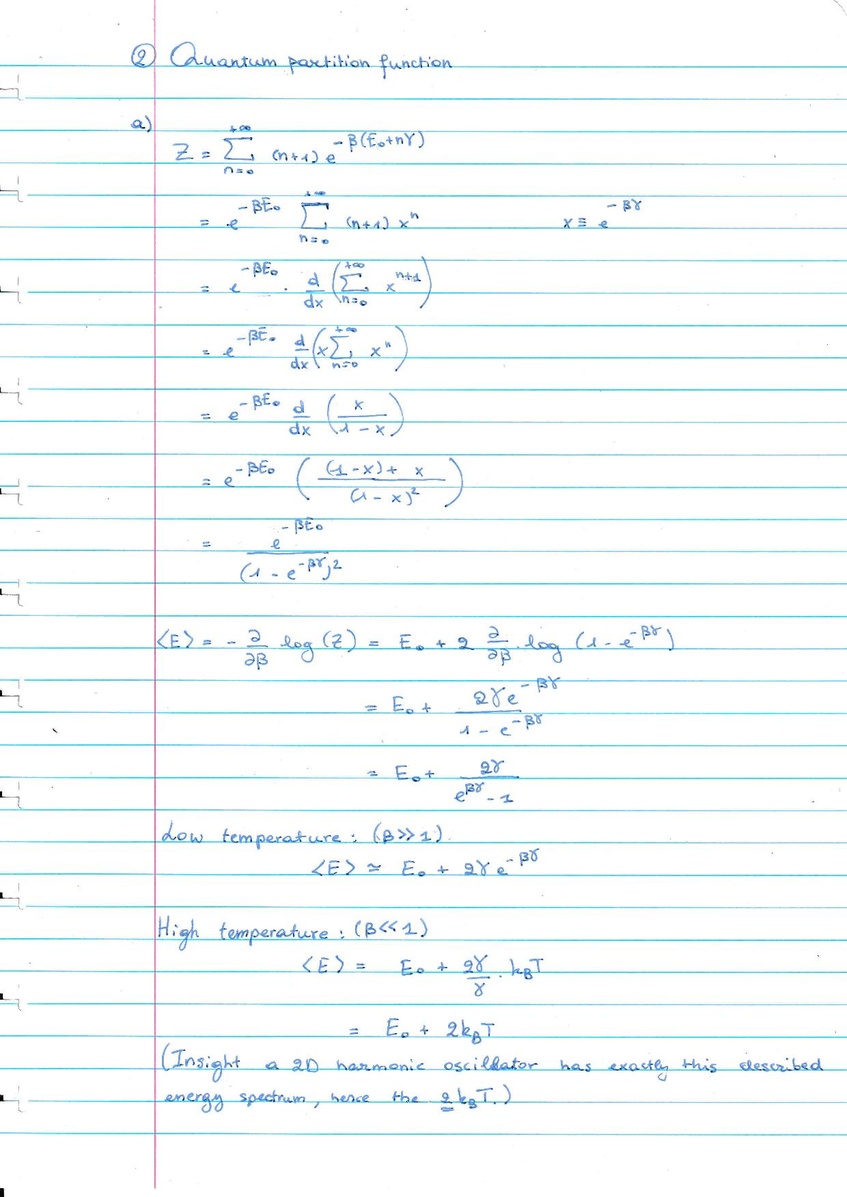 ② Quantum partition function
a)
Z = \sum_{n=0}^{+∞} (n+1) e^{-β(E₀+nγ)}
= e^{-βE₀} \sum_{n=0}^{+∞} (n+1) x^n    x ≡ e^{-βγ}
= e^{-βE₀} · \frac{d}{dx} ( \sum_{n=0}^{+∞} x^{n+1} )
= e^{-βE₀} \frac{d}{dx} ( x \sum_{n=0}^{+∞} x^n )
= e^{-βE₀} \frac{d}{dx} ( \frac{x}{1-x} )
= e^{-βE₀} ( \frac{(1-x)+x}{(1-x)^2} )
= \frac{e^{-βE₀}}{(1-e^{-βγ})^2}
⟨E⟩ = - \frac{∂}{∂β} log(Z) = E₀ + 2 \frac{∂}{∂β} log(1-e^{-βγ})
= E₀ + \frac{2γe^{-βγ}}{1-e^{-βγ}}
= E₀ + \frac{2γ}{e^{βγ}-1}
Low temperature : (β>>1)
⟨E⟩ ≃ E₀ + 2γe^{-βγ}
High temperature : (β<<1)
⟨E⟩ = E₀ + \frac{2γ}{γ} · k_BT
= E₀ + 2k_BT
(Insight a 2D harmonic oscillator has exactly this described
energy spectrum, hence the 2k_BT.)